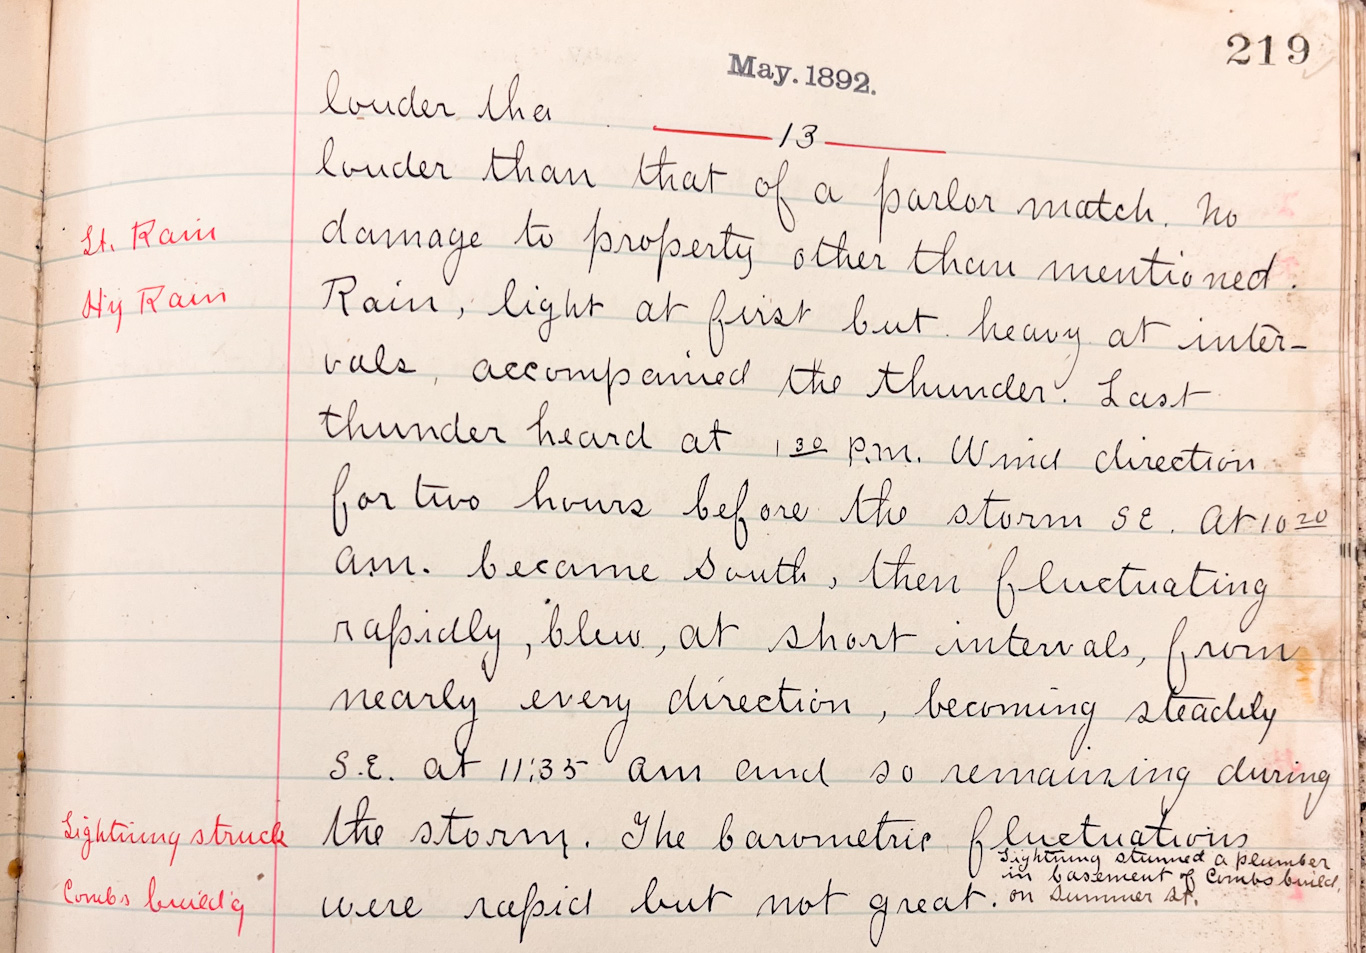 219
May. 1892.
louder tha
13
louder than that of a parlor match. No
Lt. Rain
damage to property other than mentioned.
Hy Rain
Rain, light at first but heavy at inter-
vals, accompanied the thunder. Last
thunder heard at 1 30 P.m. Wind direction
for two hours before the storm SE. At 10 20
am. became South, then fluctuating
rapidly, blew, at short intervals, from
nearly every direction, becoming steadily
S.E. at 11:35 am and so remaining during
Lightning struck
the storm. The barometric fluctuations
Combs build'g
were rapid but not great.
Lightning stunned a plumber
in basement of Combs build,
on Summer St.